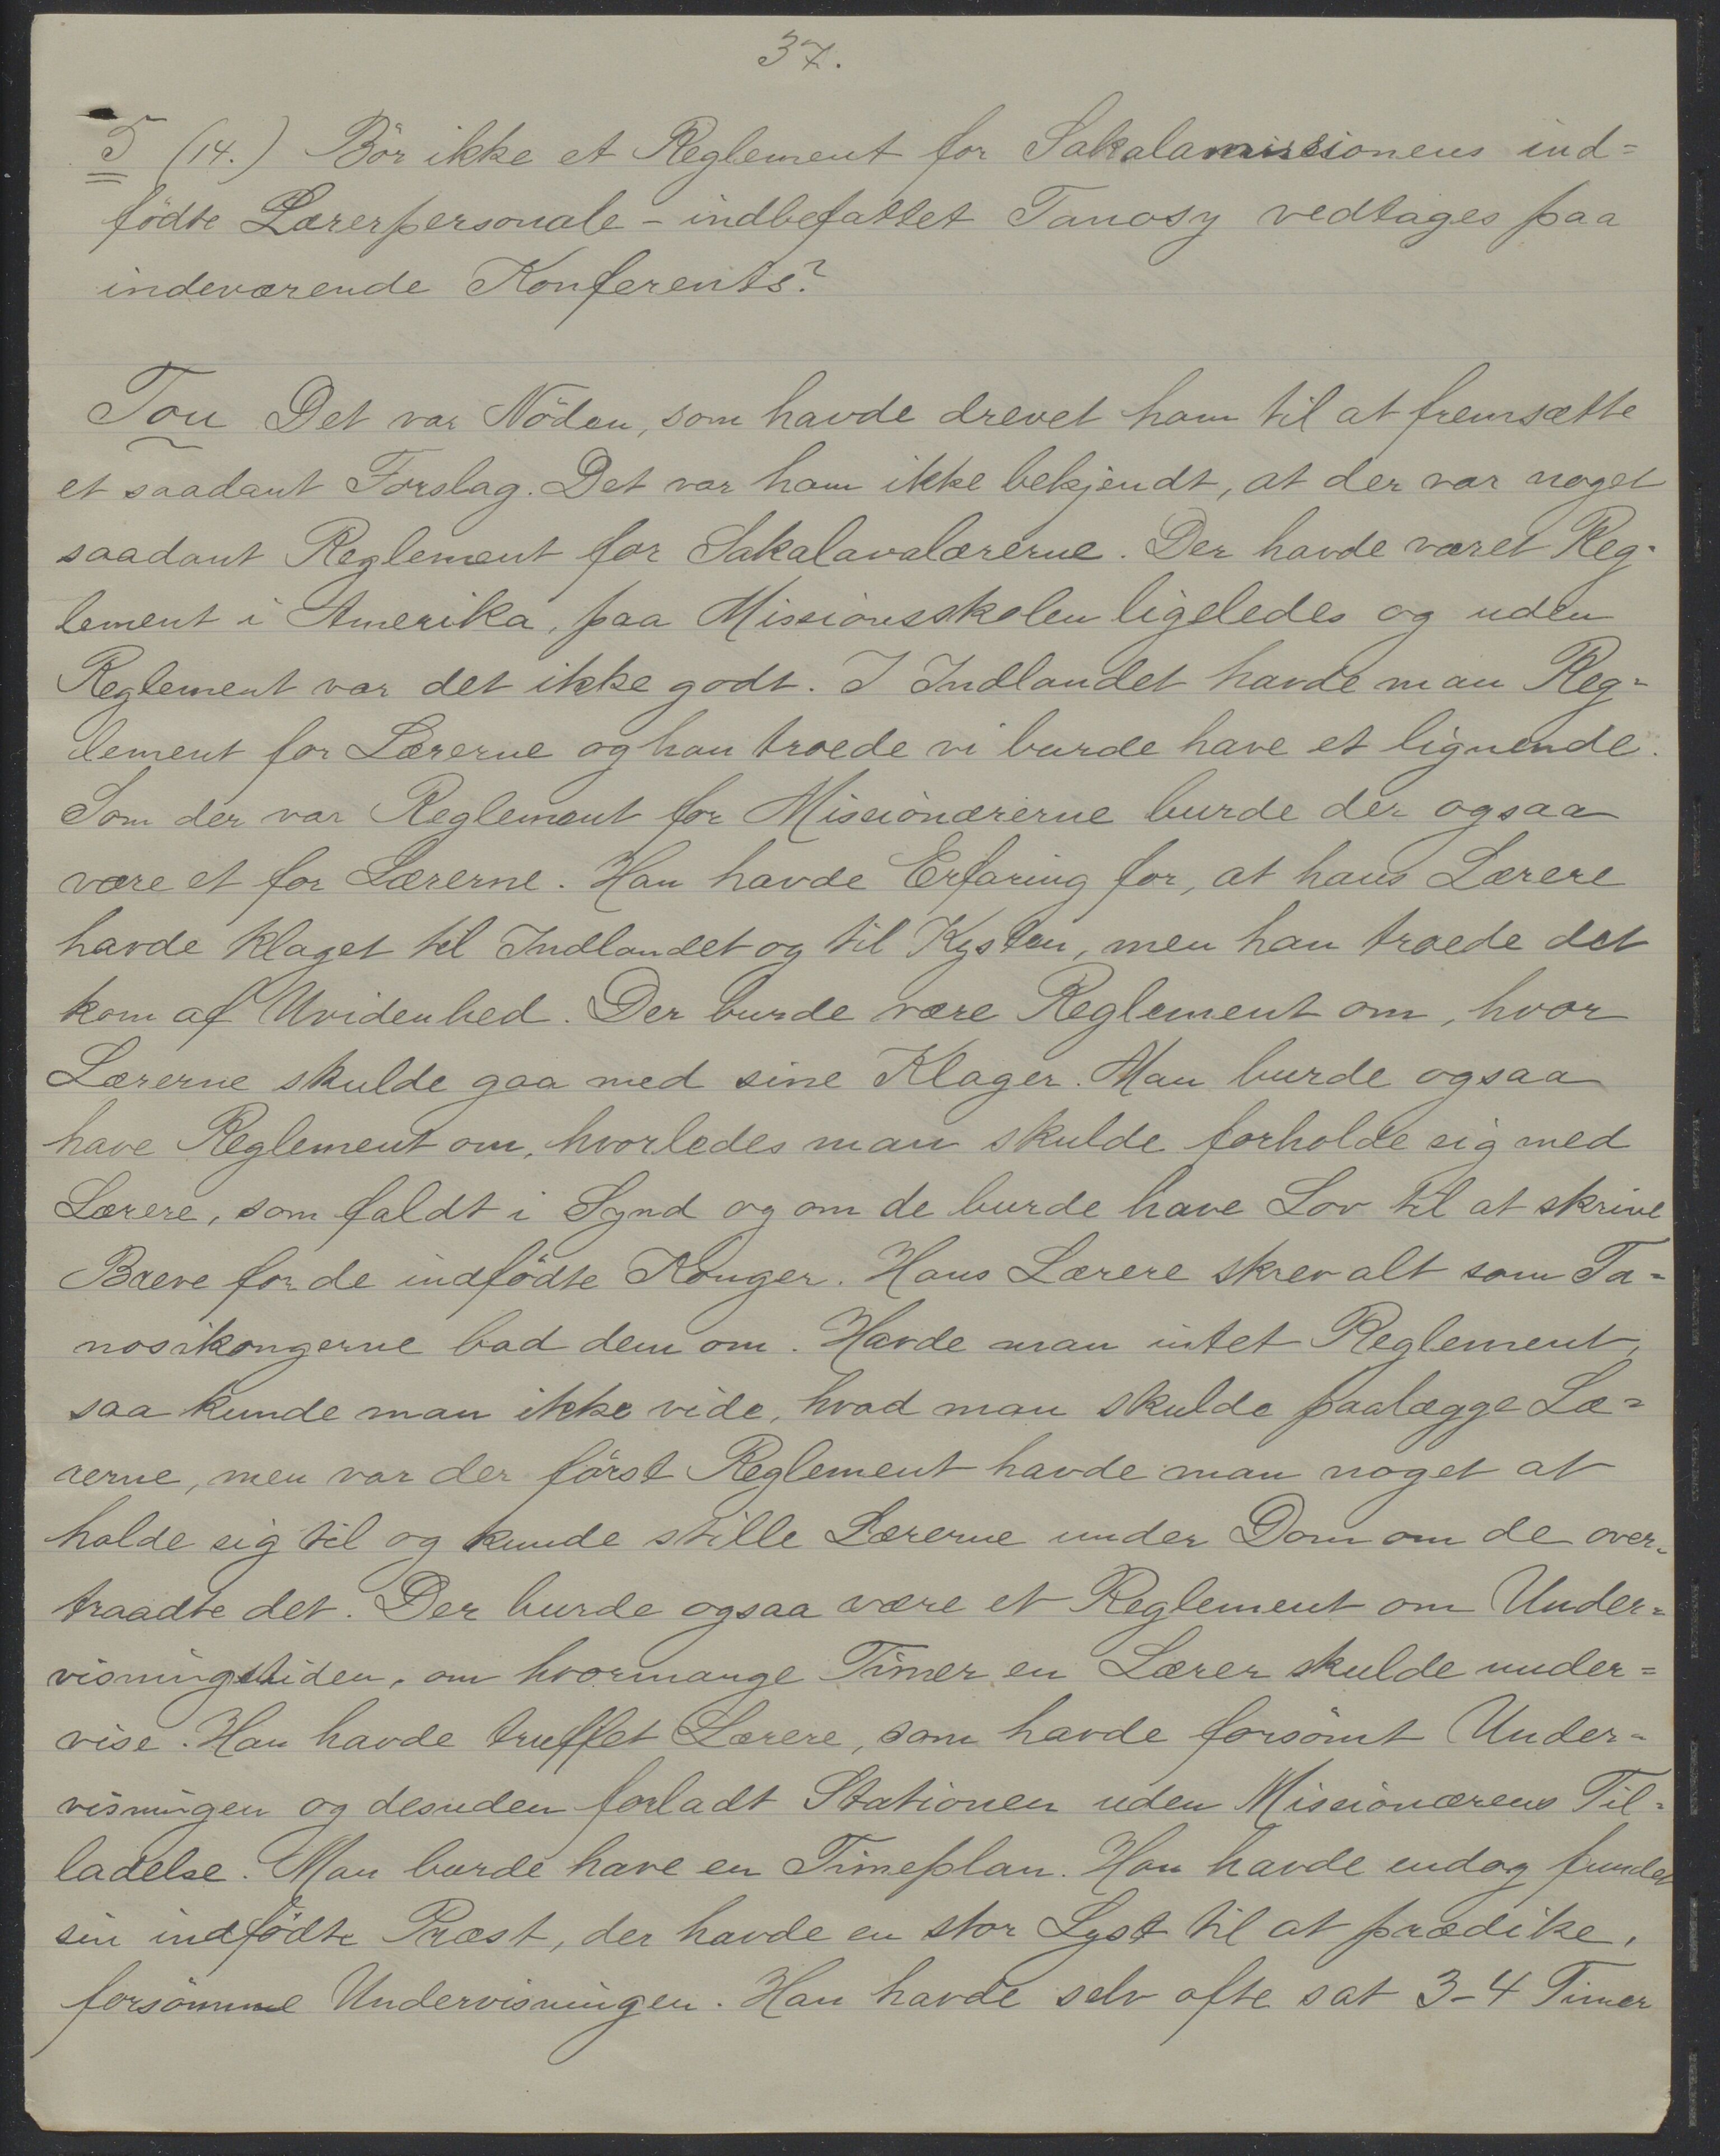 37.
5 (14.) Bör ikke et Reglement for Sakalamissionens ind=
födte Lærerpersonale - indbefattet Tanosy vedtages paa
indeværende Konferents?
Tou Det var Nöden, som havde drevet ham til at fremsætte
et saadant Forslag. Det var ham ikke bekjendt, at der var noget
saadant Reglement for Sakalavalærerne. Der havde været Reg-
lement i Amerika, paa Missionsskolen ligeledes og uden
Reglement var det ikke godt. I Indlandet havde man Reg=
lement for Lærerne og han troede vi burde have et lignende.
Som der var Reglement for Missionærerne burde der ogsaa
være et for Lærerne. Han havde Erfaring for, at hans Lærere
havde klaget til Indlandet og til Kysten, men han troede det
kom af Uvidenhed. Der burde være Reglement om, hvor
Lærerne skulde gaa med sine Klager. Man burde ogsaa
have Reglement om, hvorledes man skulde forholde sig med
Lærere, som faldt i Synd og om de burde have Lov til at skrive
Breve for de indfödte Konger. Hans Lærere skrev alt som Ta=
nosikongerne bad dem om. Havde man intet Reglement,
saa kunde man ikke vide, hvad man skulde paalægge Læ=
rerne, men var der först Reglement havde man noget at
holde sig til og kunde stille Lærerne under Dom om de over-
traadte det. Der burde ogsaa være et Reglement om Under=
visningstiden, om hvormange Timer en Lærer skulde under=
vise. Han havde truffet Lærere, som havde forsömt Under=
visningen og desuden forladt Stationen uden Missionærens Til=
ladelse. Man burde have en Timeplan. Han havde endog fundet
sin indfödte Præst, der havde en stor Lyst til at prædike,
forsömme Undervisningen. Han havde selv ofte sat 3-4 Timer